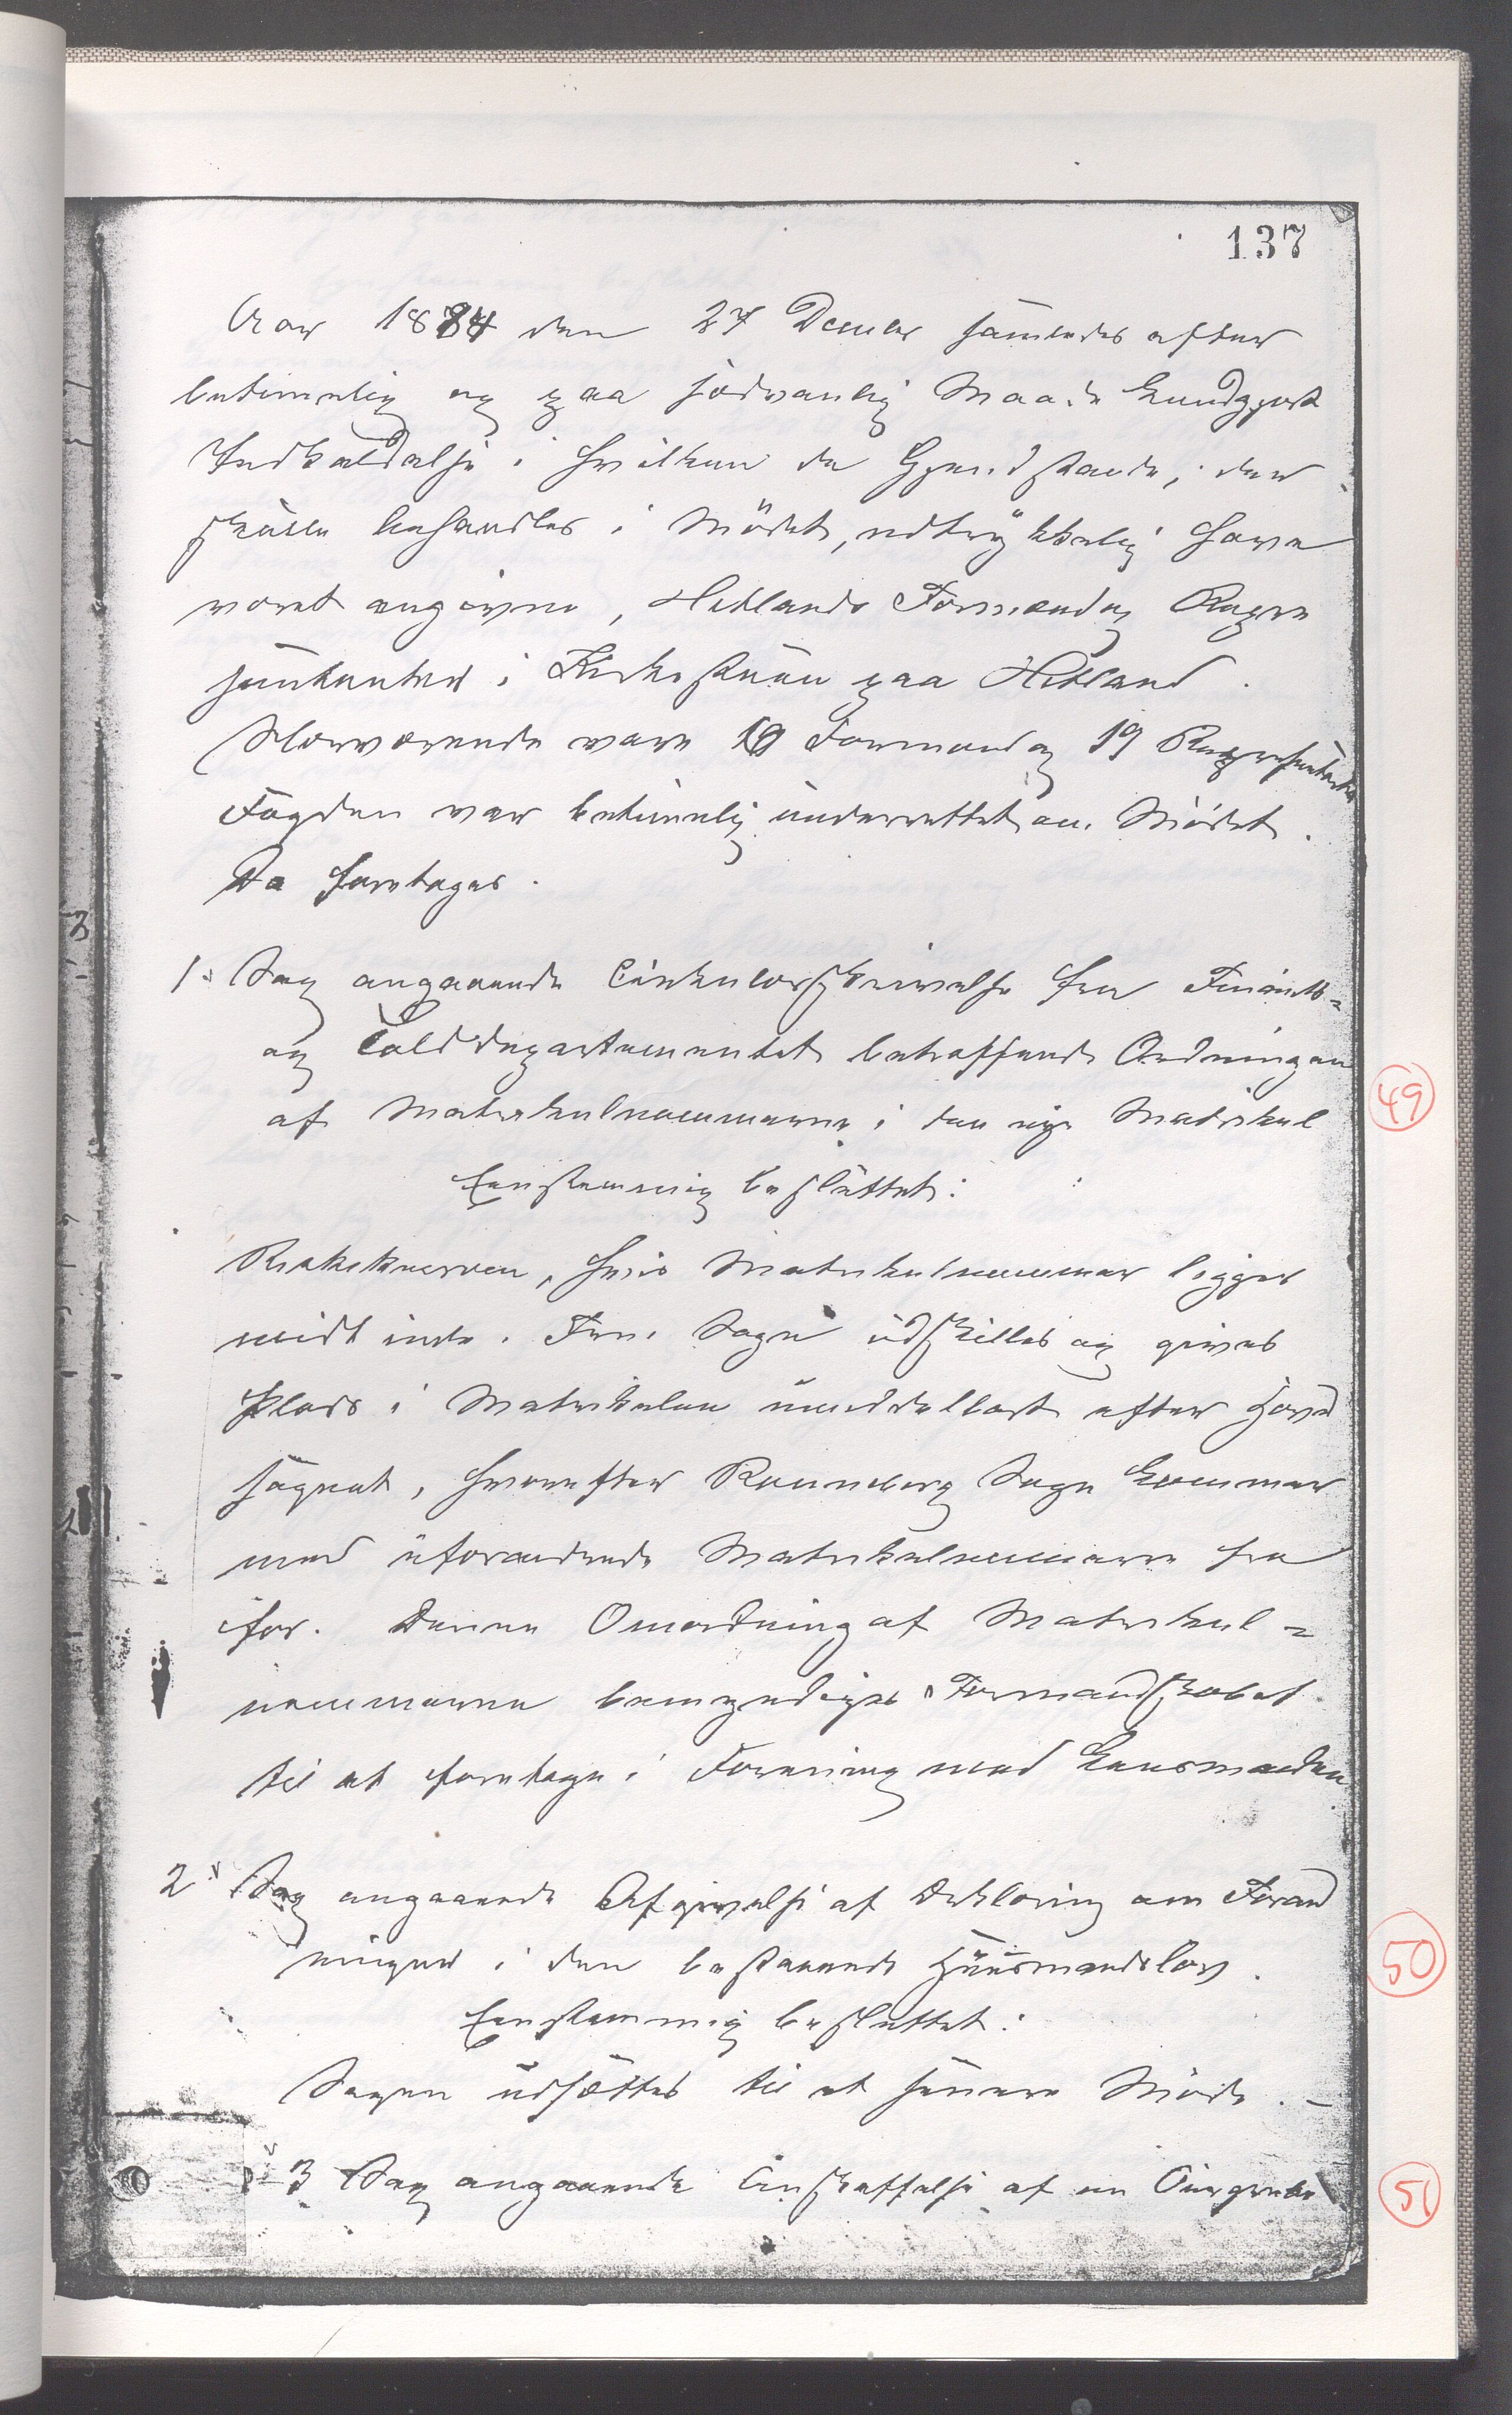 137
Aar 1884 den 27 Decembr samledes efter
betimelig og paa sædvanlig Maade kundgjort
Indkaldelse i hvilken de Gjenstande, der
skulle behandles i Mödet, udtrykkelig have
været angivne, Hetlands Formænd og Repræ
sentanter i Kirkestuen paa Hetland.
Nærværende vare 10 Formænd og 19 Repræsentanter
Fogden var betimelig underrettet om Mödet.
Da foretoges.
1. Sag angaaende Cirkulærskrivelse fra Finants-
og Tolddepartementet betræffende Ordningen
af Matrikulnummerne i den nye Matrikul
Eenstemmig besluttet:
hvis Matrikulnummer ligger
midt inde i Frue Sogn udskilles og gives
Plads i Matrikulen umiddelbart efter Hoved
sognet, hvorefter Rennesberg Sogn kommer
med uforandrede Matrikulnummere fra
för. Denne Omordning af Matrikul-
nummerne bemyndiges Formandskabet
til at foretage i Forening med Lensmanden
2. Sag angaaende Afgivelse af Erklæring om Forand
ringer i den bestaaende Huusmandslov.
Eenstemmig besluttet:
Sagen udsættes til et senere Möde. -
3 Sag angaaende Anskaffelse af en
49
50
51